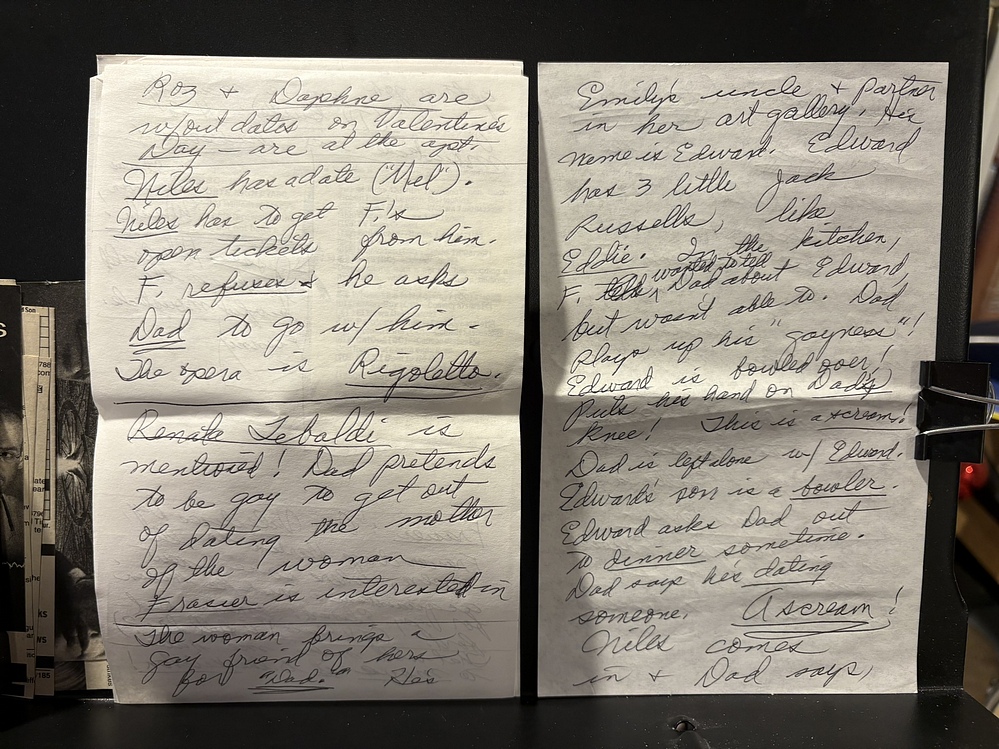 Roz + Daphne are
w/out dates on Valentine's
Day – are at the apt.
Niles has a date ("Mel").
Niles has to get F.'s
open tickets from him.
F. refuses & he asks
Dad to go w/ him.
The opera is Rigoletto.
Renata Tebaldi is
mentioned! Dad pretends
to be gay to get out
of dating the mother
of the woman
Frasier is interested in
The woman brings a
gay friend of hers
for "Dad." He's
Emily's uncle + partner
in her art gallery. His
name is Edward. Edward
has 3 little Jack
Russells, like
Eddie. In the kitchen,
F. wanted to tell Dad about Edward
but wasn't able to. Dad
plays up his "gayness"!
Edward is bowled over!
Puts his hand on Dad's
knee! This is a scream!
Dad is left alone w/ Edward.
Edward's son is a bowler.
Edward asks Dad out
to dinner sometime.
Dad says he's dating
someone. A scream!
Niles comes
in + Dad says,